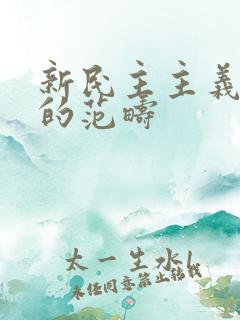 新民主主义
的范畴
太一生水(
未经同意禁止转载